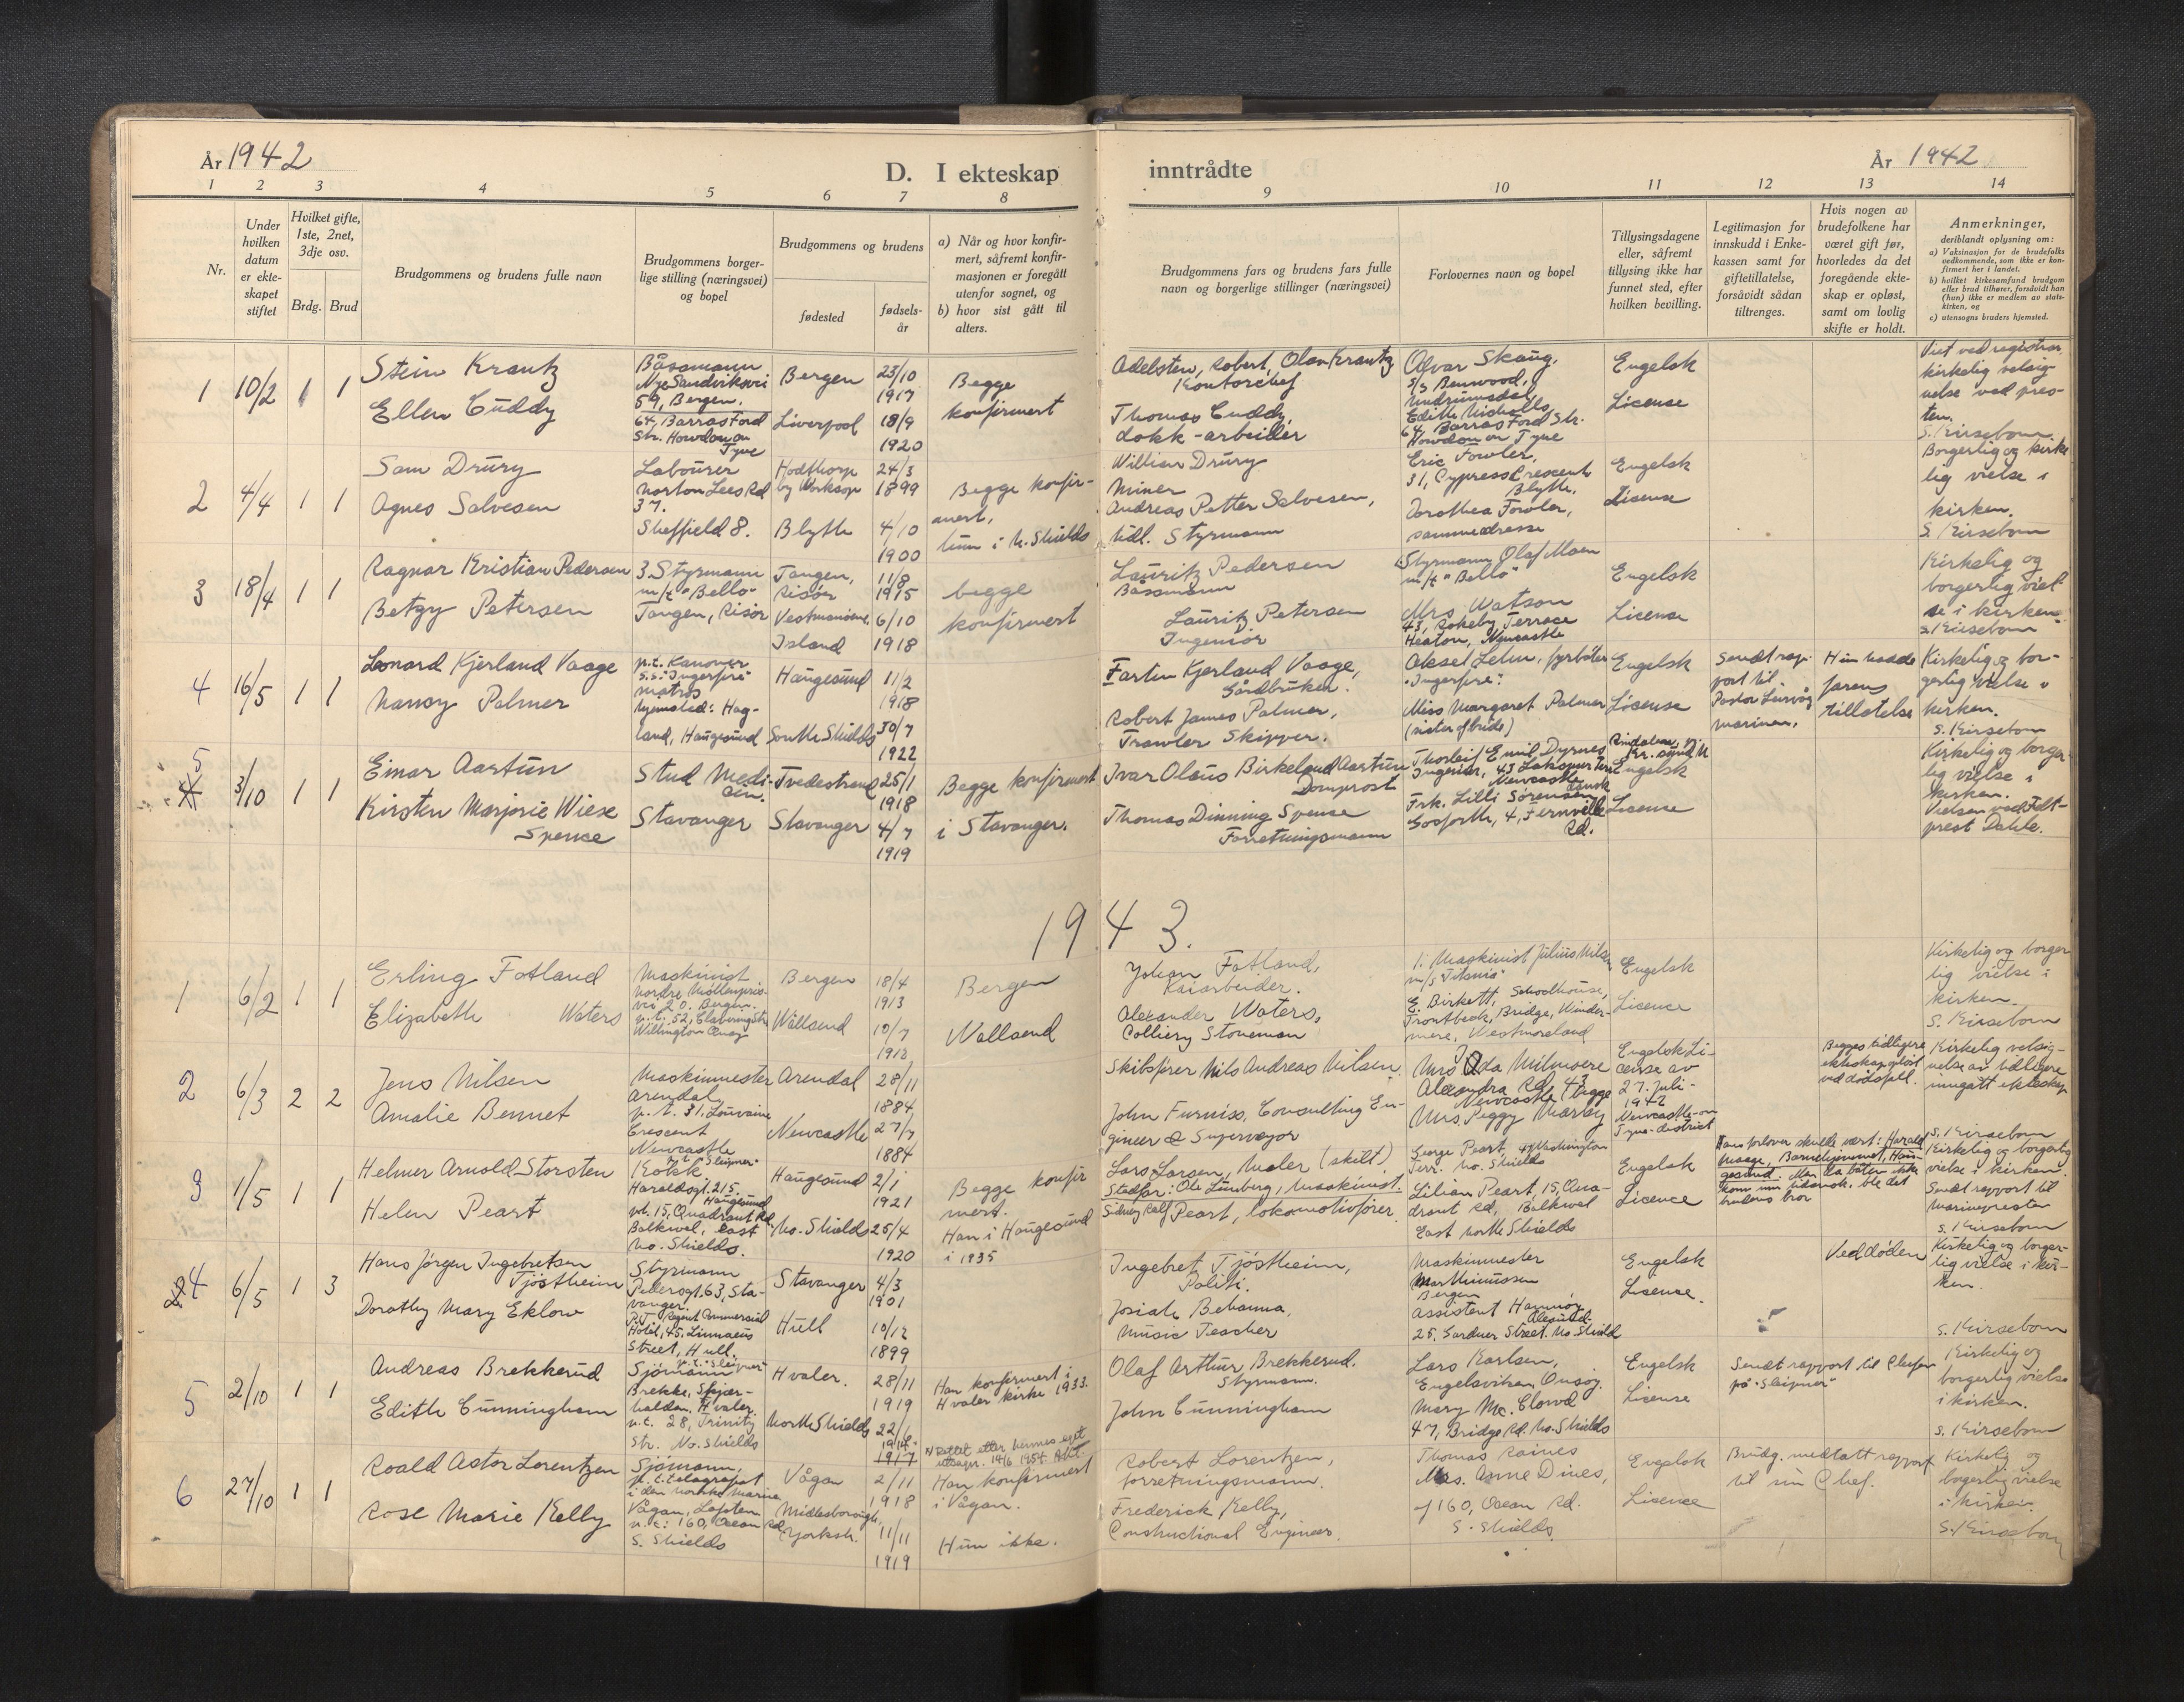 År 1942
D. I ekteskap
inntrådte
År 1942
1 2 3 4 5 6 7 8 9 10 11 12 13 14
Nr.
Under
hvilken
datum
er ekte-
skapet
stiftet
Hvilket gifte,
1ste, 2net,
3dje osv.
Brdg. Brud
Brudgommens og brudens fulle navn
Brudgommens borger-
lige stilling (næringsvei)
og bopel
Brudgommens og brudens
fødested
fødsels-
år
a) Når og hvor konfir-
mert, såfremt konfir-
masjonen er foregått
utenfor sognet, og
b) hvor sist gått til
alters.
Brudgommens fars og brudens fars fulle
navn og borgerlige stillinger (næringsvei)
Forlovernes navn og bopel
Tillysingsdagene
eller, såfremt
tillysing ikke har
funnet sted, efter
hvilken bevilling.
Legitimasjon for
innskudd i Enke-
kassen samt for
giftetillatelse,
forsåvidt sådan
tiltrenges.
Hvis nogen av
brudefolkene har
været gift før,
hvorledes da det
foregående ekte-
skap er opløst,
samt om lovlig
skifte er holdt.
Anmerkninger,
deriblandt oplysning om:
a) Vaksinasjon for de brudefolks
vedkommende, som ikke er kon-
firmert her i landet.
b) hvilket kirkesamfund brudgom
eller brud tilhører, forsåvidt han
(hun) ikke er medlem av stats-
kirken, og
c) utensogns bruders hjemsted.
1 10/2 1 1
Stein Krantz
Ellen Cuddy
Båsmann
Nye Sandviksvei
59, Bergen.
64, Barras Ford
Str. Howdon on
Tyne
Bergen
Liverpool
23/10
1917
18/9
1920
Begge
konfirmert
Adelsten, Robert, Olav Krantz
Kontorchef
Thomas Cuddy,
dokk-arbeider
Alvar Skaug,
S/S Benwood,
Edith Nicholls,
64, Barras Ford Str.
Howdon on Tyne
Engelsk
License
Viet ved registrar
kirkelig velsig-
nelse ved pres-
ten.
S. Kirsebom.
2 4/4 1 1
Sam Drury
Agnes Salvesen
Labourer
Norton Lees Rd
37.
Sheffield 8.
Hodthorpe
by Worksop
Blyth
24/3
1899
4/10
1900
Begge konfir-
mert,
hun i N. Shields
William Drury
Miner
Andreas Petter Salvesen,
tidl. Styrmann
Eric Fowler,
31, Cypress Crescent
Blyth.
Dorothea Fowler,
samme adresse
Engelsk
License
Borgerlig og kirke
lig vielse i
kirken.
S. Kirsebom
3 18/4 1 1
Ragnar Kristian Pedersen
Betzy Petersen
3. Styrmann
m/t "Bello"
Tangen, Risør
Tangen,
Risør
Island
11/8
1915
6/10
1918
begge
konfirmert
Lauritz Pedersen
Båssmann
Lauritz Petersen
Ingeniør
Styrmann Olaf Moen
m/t "Bello"
Mrs Watson
43, Rokeby Terrace
Heaton, Newcastle
Engelsk
License
Kirkelig og
borgerlig viel-
se i kirken.
S. Kirsebom
4 16/5 1 1
Leonard Kjerland Vaage
Nancy Palmer
p.t. Kanonér
s.s. "Ingerfire"
matros
hjemsted: Hag-
land, Haugesund
Haugesund
South Shields
11/2
1918
30/7
1922
Fartin Kjerland Vaage,
Gårdbruker.
Robert James Palmer,
Trawler Skipper.
Aksel Lehn, fyrbøter
"Ingerfire".
Miss Margaret Palmer
(sister of bride)
Engelsk
License
Sendt rap-
port til
Pastor Lurvåg
marinen.
Hun hadde
farens
tillatelse
Kirkelig og bor-
gerlig vielse i
kirken.
S. Kirsebom
5 3/10 1 1
Einar Aartun
Kirsten Marjorie Wiese
Spence
Stud Medi-
cin.
Stavanger
Tvedestrand
Stavanger
25/1
1918
4/7
1919
Begge konfirmert
i Stavanger.
Ivar Olaus Birkeland Aartun
Domprost
Thomas Dinning Spence
Forretningsmann
Thorleif Emil Dyrnes
Ingeniør, 43 Larkspur Terr
Newcastle
Frk. Lilli Sørensen, dansk
Gosforth, 4, Fernville
Rd.
Engelsk
License
Kirkelig og borger-
lig vielse i
kirken.
Vielsen ved Felt-
prest Dahle.
1943.
1 6/2 1 1
Erling Fotland
Elizabeth Waters
Maskinist
Nordre Møllenpris-
vei 20. Bergen.
p.t. 52, Clavering Str
Willington Quay
Bergen
Wallsend
18/4
1913
10/7
1912
Bergen
Wallsend
Johan Fotland,
Kaiarbeider.
Alexander Waters,
Colliery Stoneman
1. Maskinist Julius Nilsen
m/s "Titania"
E. Birkett, Schoolhouse,
Troutbeck, Bridge, Winder-
mere, Westmoreland
Engelsk
Licence
Kirkelig og borger
lig vielse i
kirken.
S. Kirsebom
2 6/3 2 2
Jens Nilsen
Amalie Bennet
Maskinmester
Arendal
p.t. 31, Louvaine
Crescent
Newcastle
Arendal
Newcastle
28/11
1884
27/7
1884
Skibsfører Nils Andreas Nilsen
John Furniss, Consulting En-
gineer & Superveyor
Mrs Ida Milmore
Alexandra Rd, 43
Newcastle (begge
Mrs. Peggy Marby
Engelsk Li-
cense av
27. Juli-
1942
Newcastle-on
Tyne-district
Begges tidligere
ekteskap opløst
ved dødsfall.
Kirkelig velsig-
nelse av tidligere
inngått ekteskap
S. Kirsebom
3 1/5 1 1
Helmer Arnold Storsten
Helen Peart
Kokk p.t. "Sleipner"
Haraldsgt. 215,
Haugesund
pt. 15, Quadrant Rd
Balkwel, East
No. Shields.
Haugesund
No. Shields
2/1
1921
25/4
1920
Begge konfir
mert.
Han i Haugesund
i 1935
Lars Larsen, Maler (skilt)
Stedfar: Ole Lunberg, Maskinist.
Sidney Ralf Peart, lokomotivfører
George Peart, 47 Washington
Terr. No. Shields
Lilian Peart, 15, Qua-
drant Rd, Balkwel
East North Shields
Engelsk
Licence
Hans forlover skulle vært: Harald
Waage, Barnehjemmet, Hau-
gesund. Men da båten ikke
kom inn tidsnok, ble det
brudens bror
Kirkelig og borgerlig
vielse i kirken.
Sendt rapport til
Marinepresten
S. Kirsebom
4 6/5 1 3
Hans Jørgen Ingebretsen
Tjøstheim
Dorothy Mary Eklow
Styrmann
Pedersgt. 63, Sta-
vanger.
P.T. Regent Commercial
Hotel, 45, Linnaeus
Street, Hull.
Stavanger
Hull
4/3
1901
10/12
1899
Ingebret Tjøstheim,
Politi.
Josiah Behanna,
Music Teacher
Maskinmester
Bergen
Assistent Hamnøy
Alesund
25, Gardner Street. No. Shield
Engelsk
License.
Ved døden
Kirkelig og borger-
lig vielse i kir-
ken.
S. Kirsebom
5 2/10 1 1
Andreas Brekkerud
Edith Cunningham
Sjømann p.t. "Sleipner"
Brekke, Skjær-
halden, Hvaler
p.t. 28, Trinity
Str. No. Shields
Hvaler.
North Shields
28/11
1919
22/1
1914
1917
Han konfirmert i
Hvaler kirke 1933.
x) Rettet etter hennes eget
utsagn. 19/6 1954
Olaf Arthur Brekkerud.
Styrmann.
John Cunningham
Lars Karlsen,
Engelsviken, Onsøy.
Mary Mc. Clowd
47, Bridge Rd. No. Shields
Engelsk
License
Sendt rapport til Chefen
på "Sleipner"
Kirkelig og
borgerlig vielse
i kirken.
S. Kirsebom
6 27/10 1 1
Roald Astor Lorentzen
Rose Marie Kelly
Sjømann,
p.t. telegrafist
i den norske marine
Vågan, Lofoten
p.t: 160, Ocean Rd
S. Shields
Vågan
Midlesborough,
Yorksh.
2/11
1918
11/11
1919
Han konfirmert
i Vågan.
Hun ikke.
Robert Lorentzen,
forretningsmann.
Frederick Kelly,
Constructional Engineer.
Thomas Raines
Mrs. Anne Dines,
of 160, Ocean Rd.
S. Shields
Engelsk
Licence
Brudg. medtatt rapport
til sin Chef.
Kirkelig og
borgerlig vielse
i kirken.
S. Kirsebom